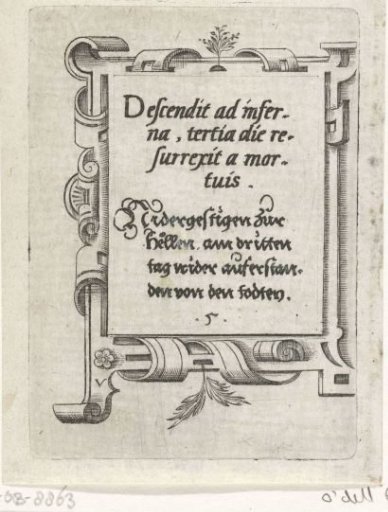 Descendit ad infer-
na, tertia die re-
surrexit a mor-
tuis.
Nidergestigen zůr
hellen, am dritten
tag wider auferstan-
den von den todten.
.5.
V
o'dell